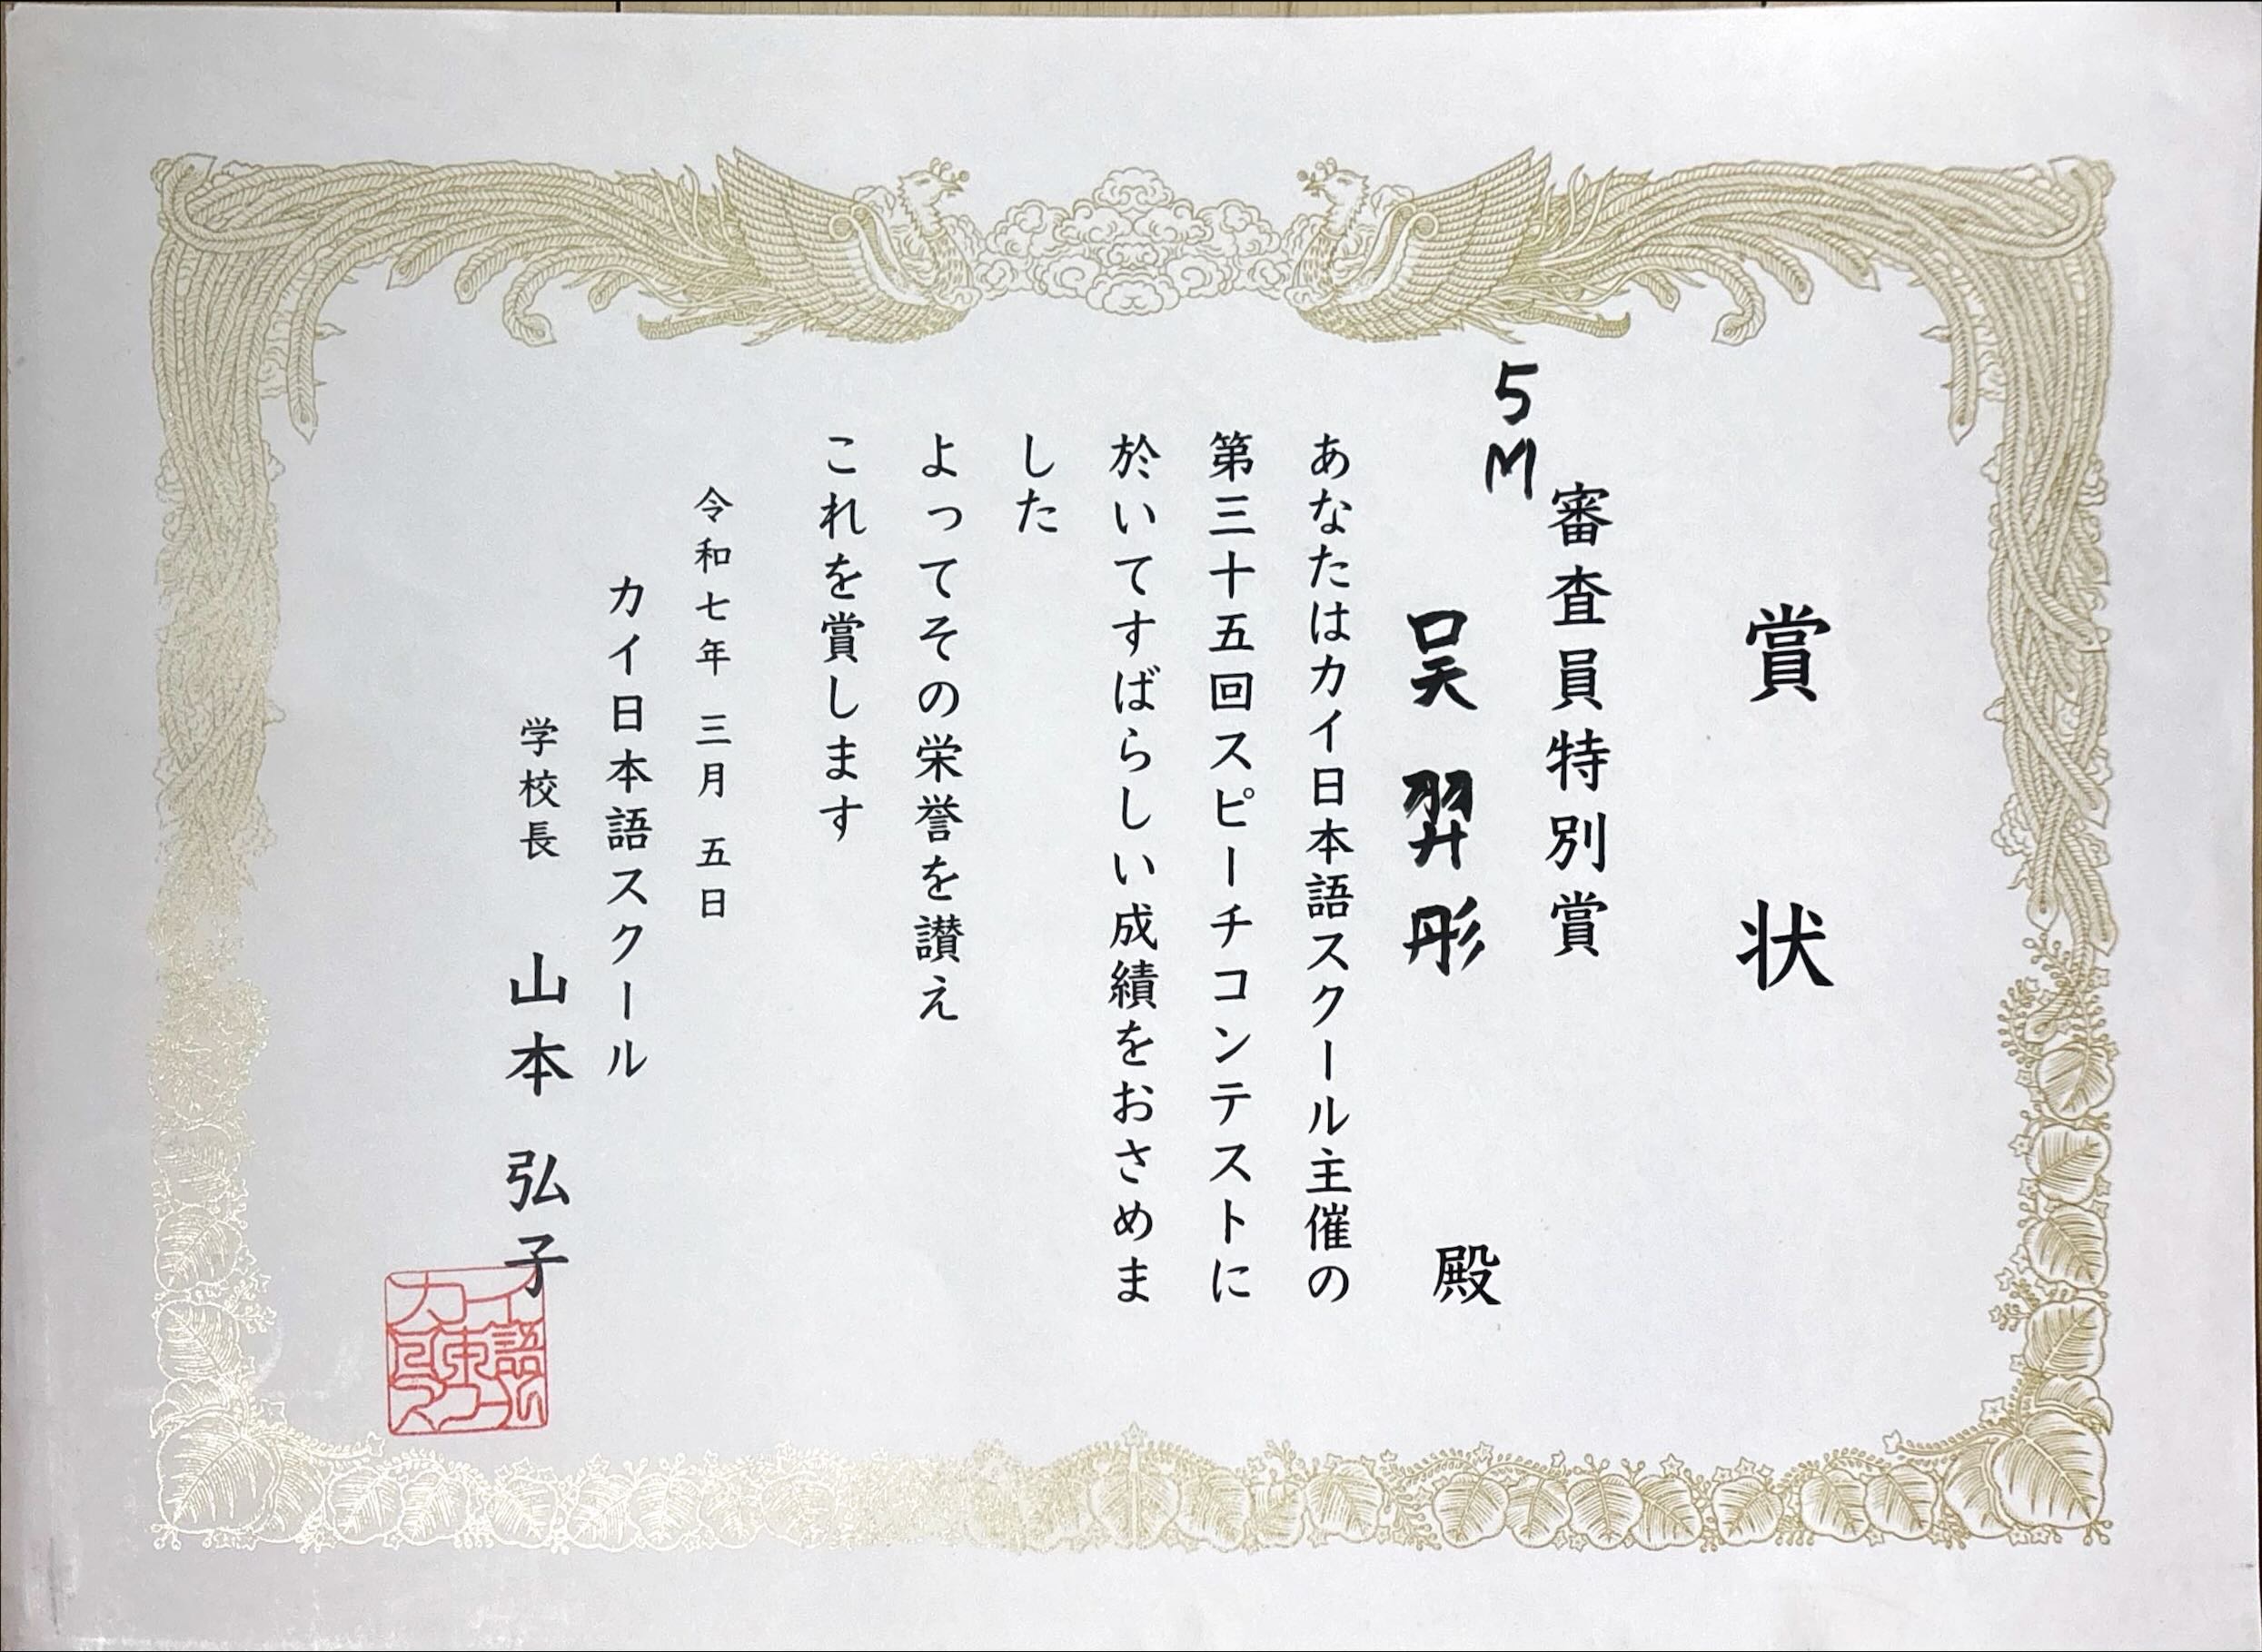 賞状
審査員特別賞
5M
吴羿彤 殿
あなたはカイ日本語スクール主催の
第三十五回スピーチコンテストに
於いてすばらしい成績をおさめま
した
よってその栄誉を讃え
これを賞します
令和七年 三月 五日
カイ日本語スクール
学校長 山本 弘子